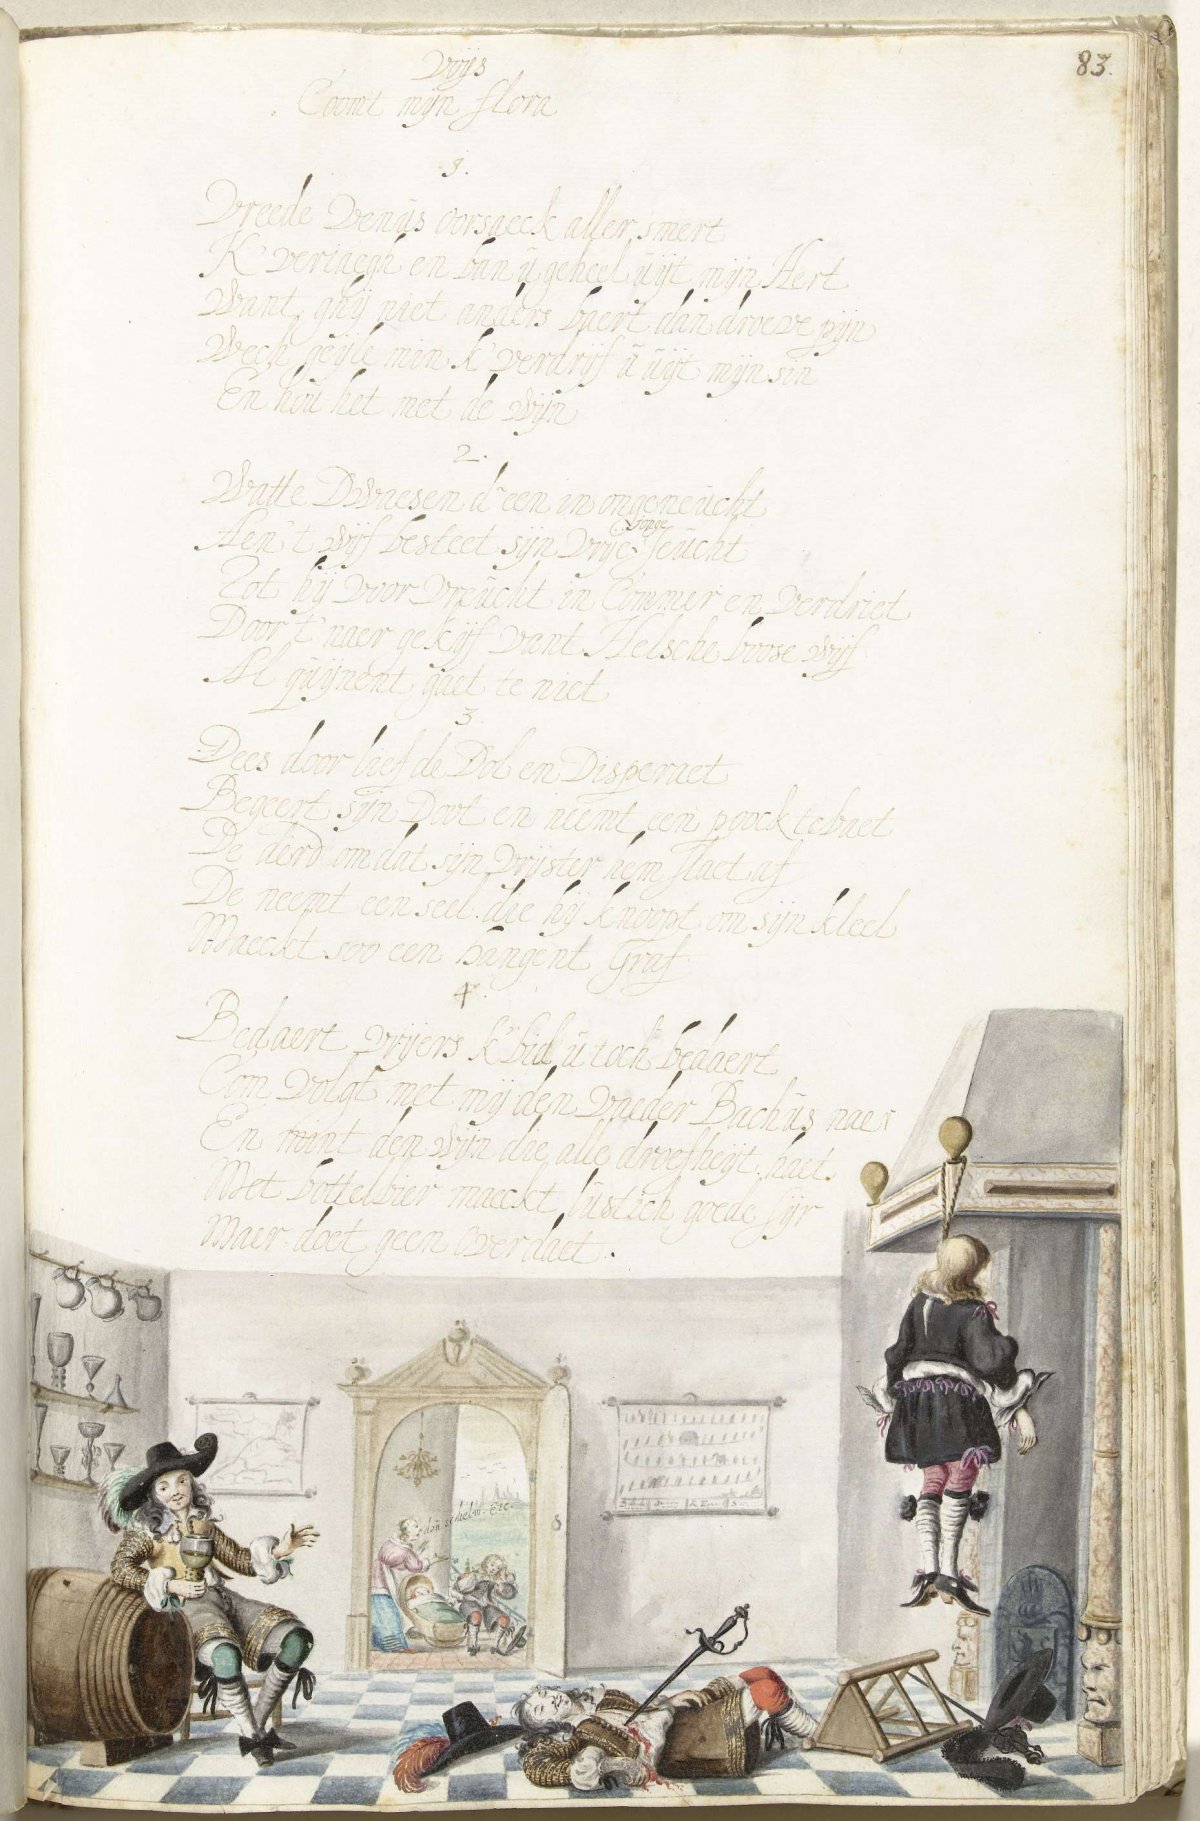 83.
Voys
Coomt mijn flora
1.
Vreede Venus oorsaeck aller smert
K' veriaegh en ban ü geheel üÿt mijn Hert
Want ghij niet anders baert dan droeve pijn
Wech geijle min k' verdrijf ü üÿt mijn sin
En hoü het met de Wijn
2.
Watte Dwaesen d'een in ongeneücht
Aen 't Wijf besteet sijn Vrije Jeücht
Jonge
Tot hij voor Vreücht in Commer en Verdriet
Door 't naer gekijf Vant Helsche boose Wijf
Al quijnent gaet te niet
3.
Dees door liefde Dol en Disperaet
Begeert sijn Doot en neemt een poock te baet
De derd' om dat sijn Vrijster hem slaet af
De neemt een seel die hij knoopt om sijn kleel
Maeckt soo een hangent Graf
4.
Bedaert Vrijers k' bid ü toch bedaert
Com Volgt met mij den Vaeder Bachüs naer
En mint den Wijn die alle droefheijt haet
Met bottelbier maeckt lüstich goede sijr
Maer doet geen Overdaet.
schelm. Etc.